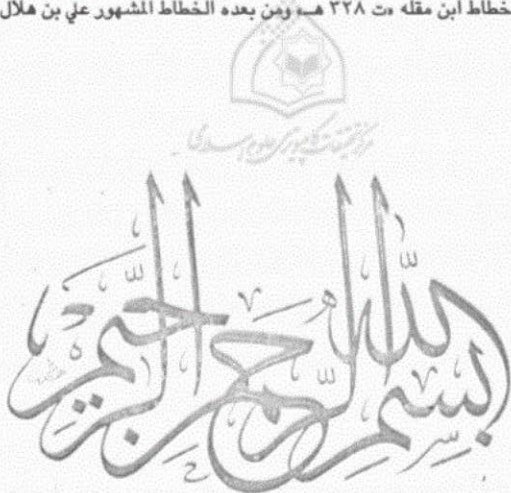 خطاط ابن مقله «ت ٣٢٨ هـ» ومن بعده الخطاط المشهور علي بن هلال
مركز تحقيقات كامپيوتری علوم اسلامی
بسم الله الرحمن الرحيم